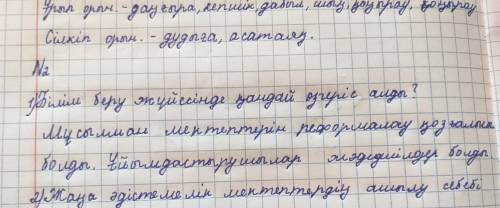 Ұрып орын. - даңғыра, кепшік, дабыл, шың, қоңырау, қоңырау
Сілкіп орын. - дудыға, асатаяқ.
№2
1) Білім беру жүйесінде қандай өзгеріс алды?
Мұсылман мектептерін реформалау қозғалыс
болды. Ұйымдастырушылар жәдидшілдер болды.
2) Жаңа әдістемелік мектептердің ашылу себебі